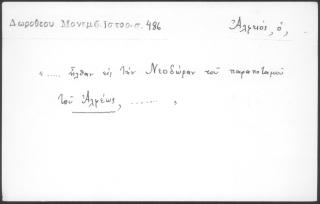 Δωροθεου Μονεμβ. Ιστορ. σ. 486
Ἀλμειός, ὁ,
«..... ἦλθαν εἰς τὴν Νεοδώραν τοῦ παραποταμοῦ
τοῦ Ἀλμέως, ...... »